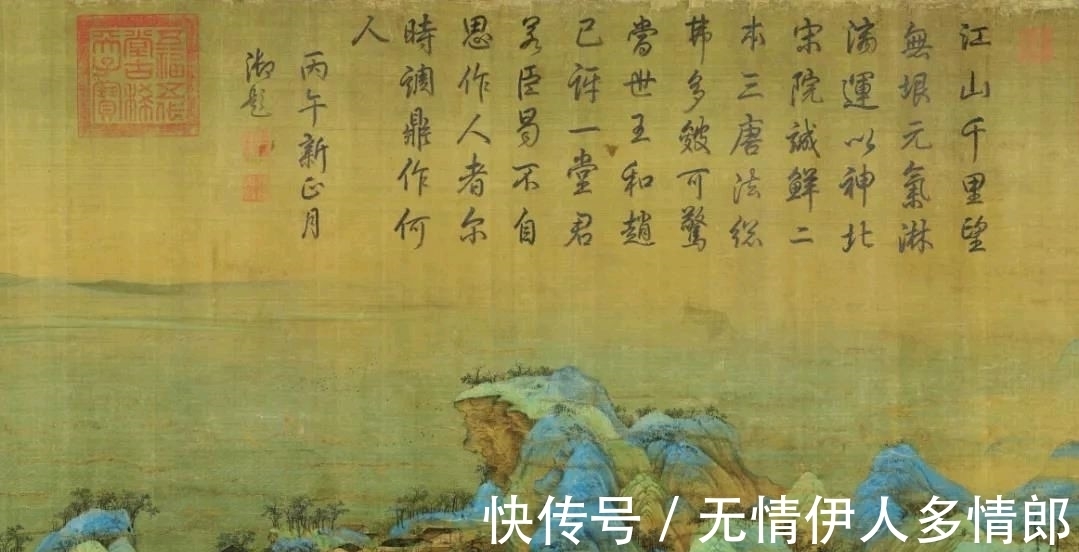 江山千里望
無垠元氣淋
漓運以神北
宋院誠鮮二
本三唐法総
弗多皴可驚
當世王和趙
已訝一堂君
若臣曷不自
思作人者尔
時調鼎作何
人
丙午新正月
御題
五福五代
堂古稀
天子寶
快传号 / 无情伊人多情郎